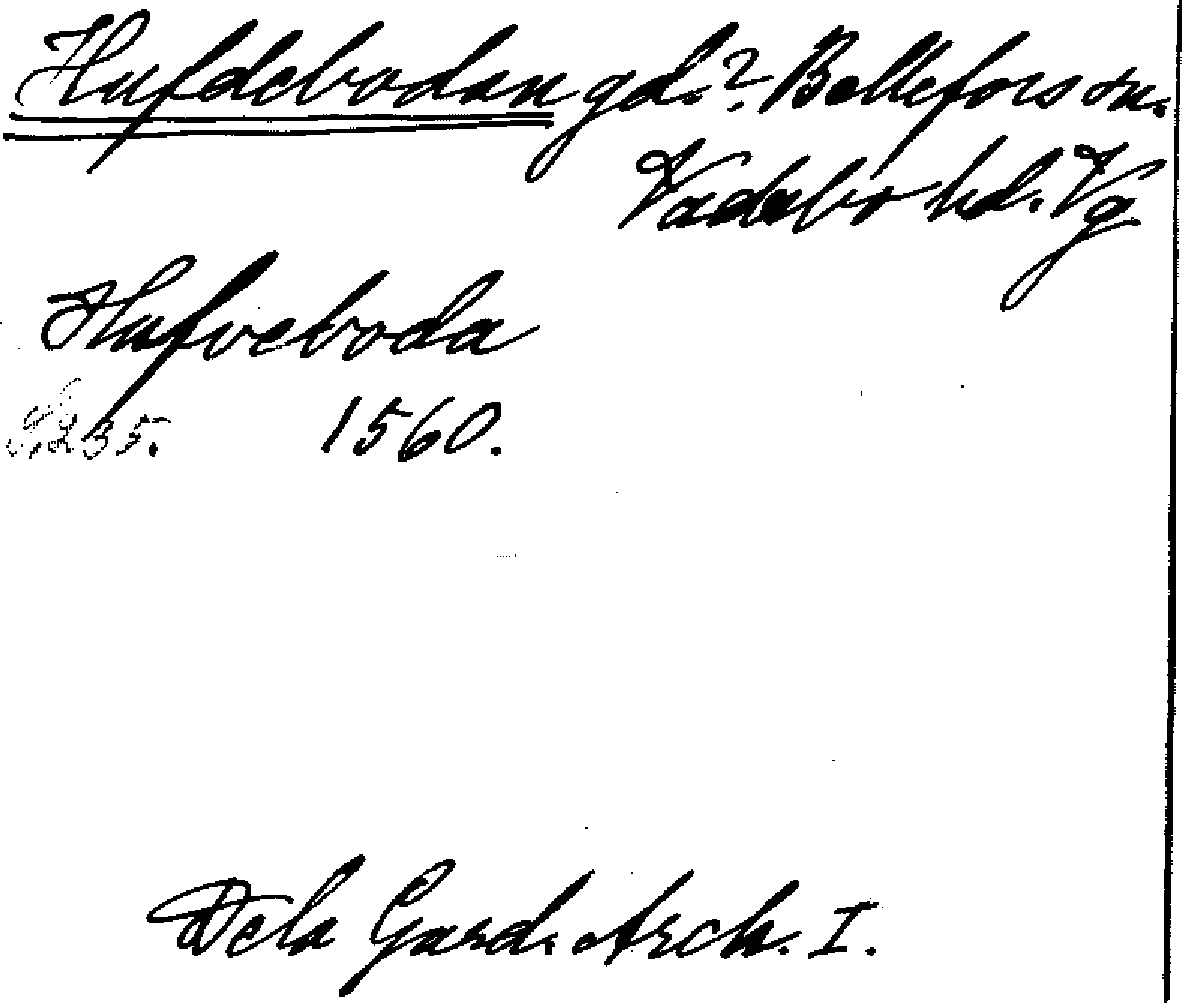 Hufdebodan gd.? Bellefors sn.
Vadsbo hd. Vg
Hufveboda
S. 235. 1560.
De la Gard. Arch. I.